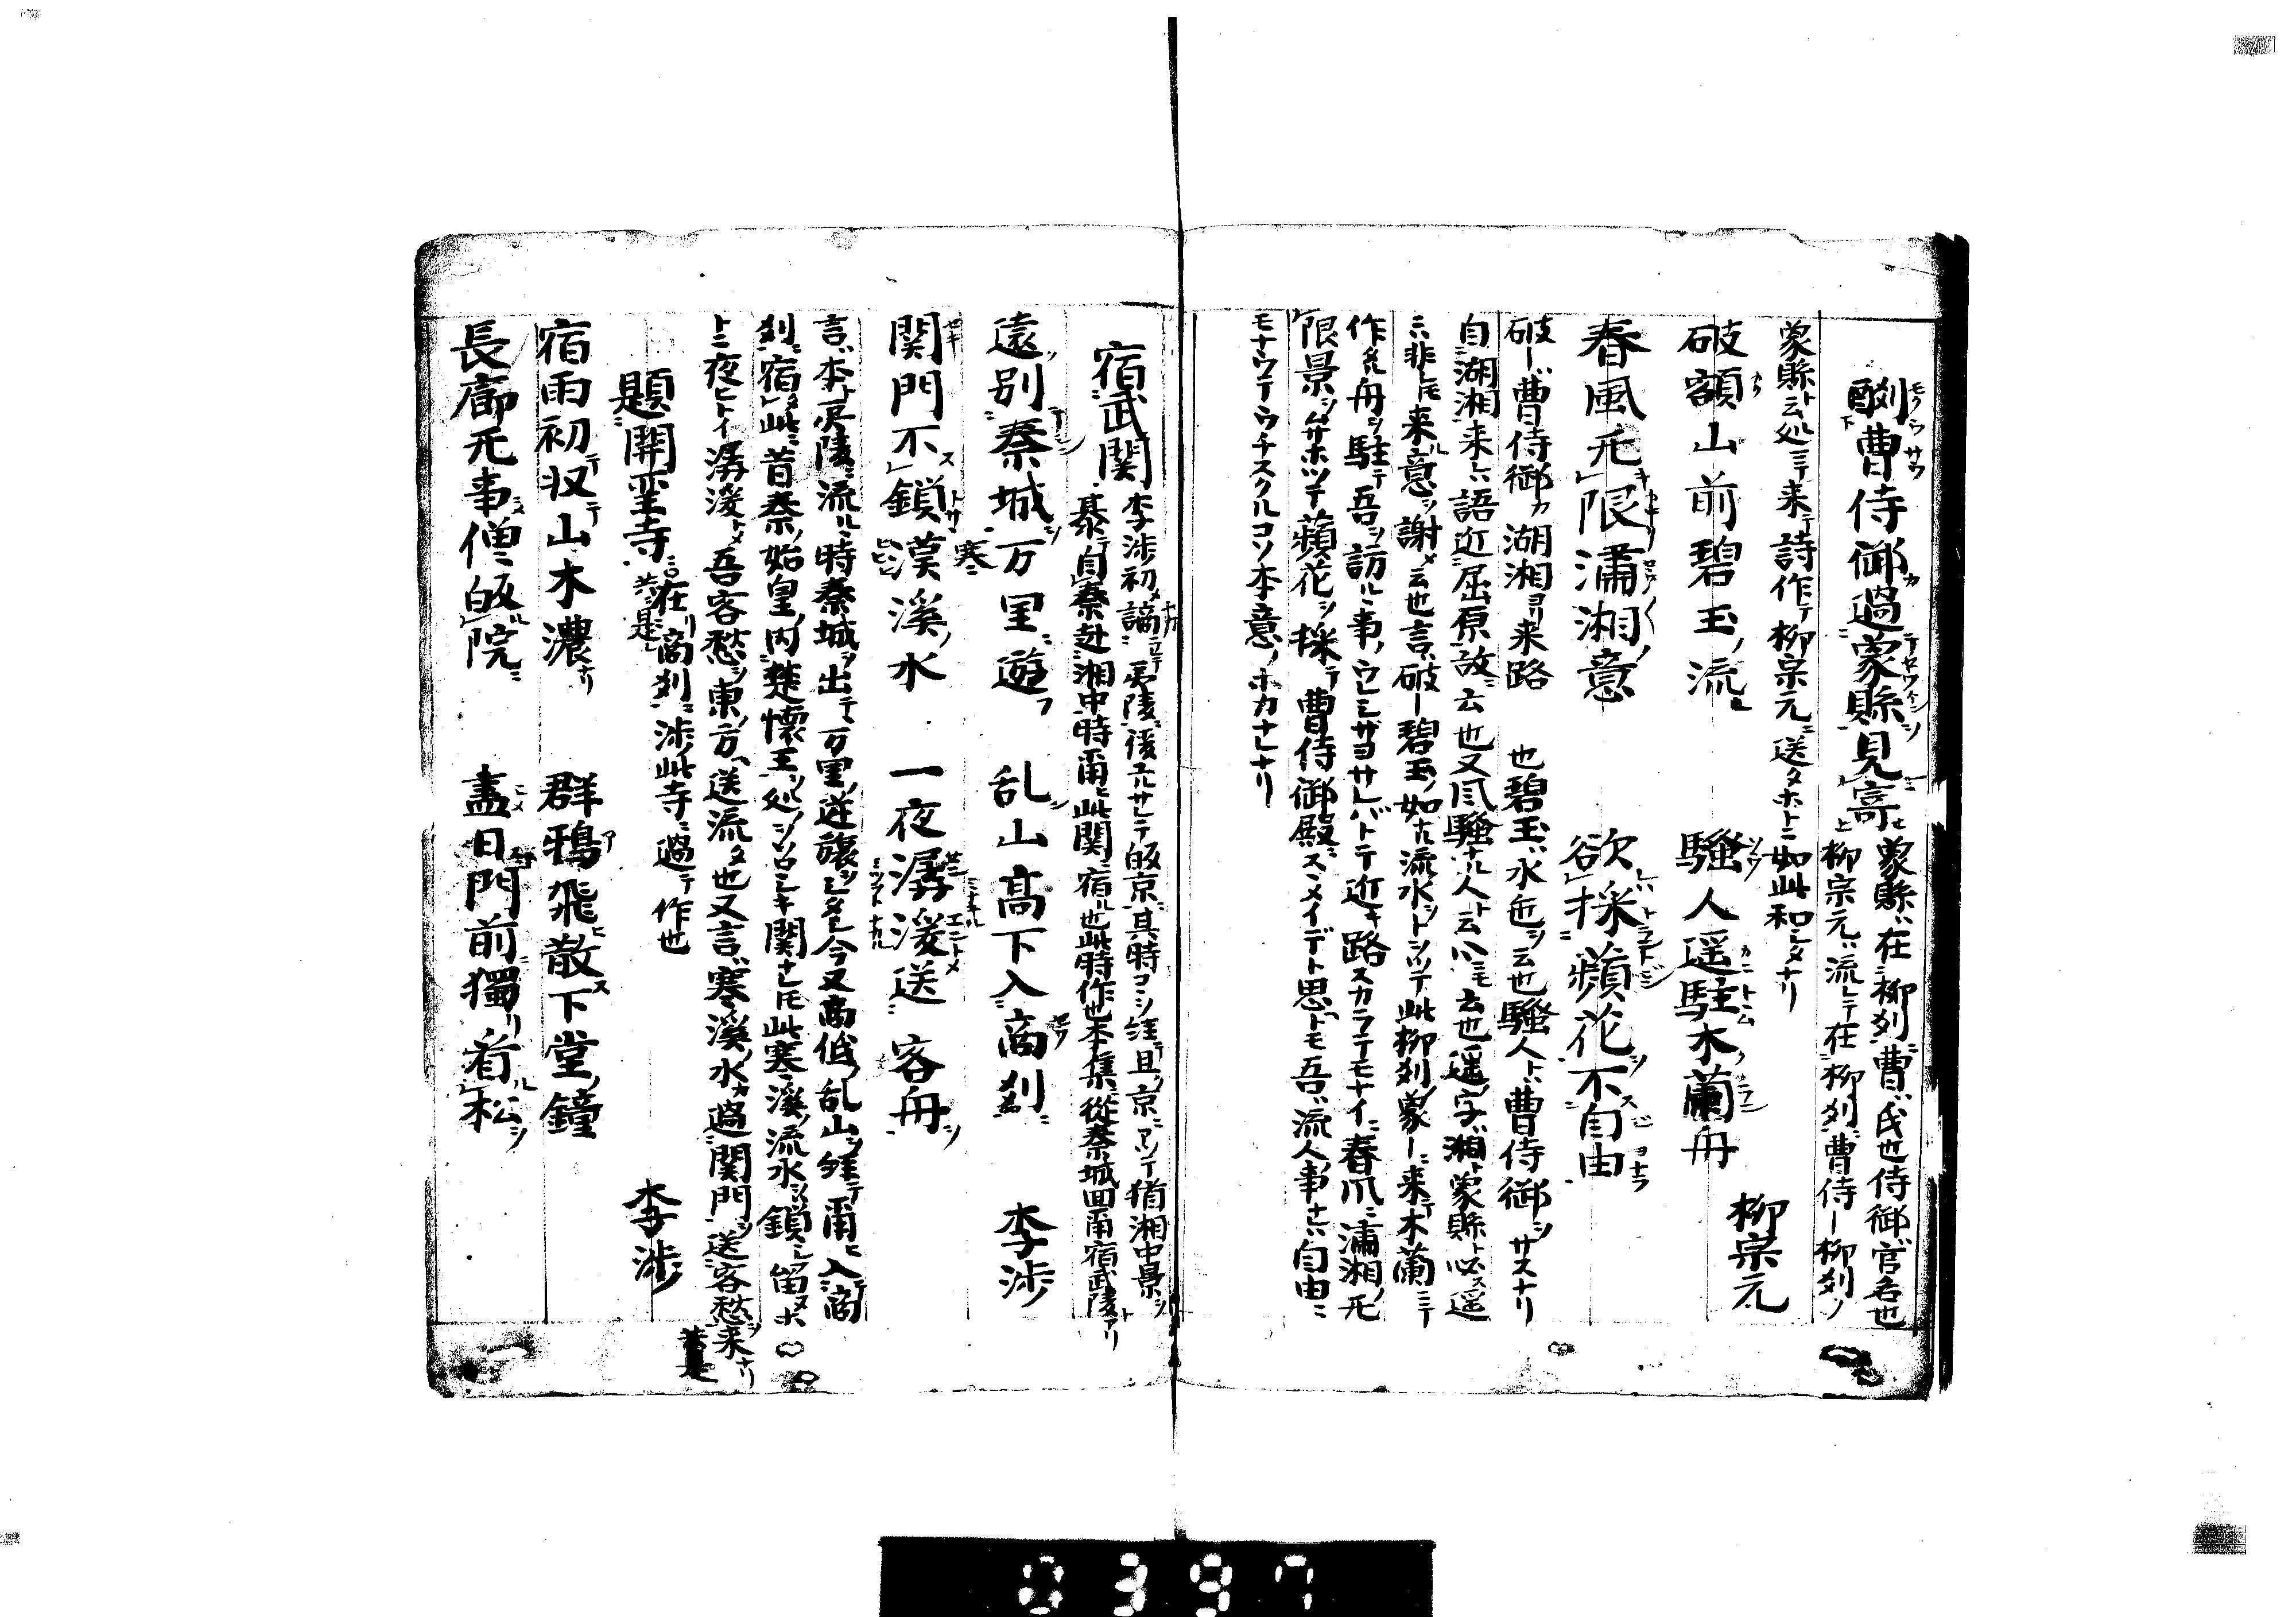 酬曹侍御過象縣見寄
象縣ハ在柳刕曹ハ氏也侍御ハ官名也
柳宗元ハ流レテ在柳刕曹侍ー柳刕ノ
象縣ト云処ニテ来テ詩作テ柳宗元ニ送タホトニ如此和シタナリ
柳宗元
破額山前碧玉流 騷人遥駐木蘭舟
春風无限瀟湘意 欲採蘋花不自由
破ーハ曹侍御カ湖湘ヨリ来路也碧玉ハ水色ヲ云也騷人トハ曹侍御ヲサスナリ
自湖湘来ト云語近屈原故ニ云也又風騷ナル人ト云心ニモ云也遥ノ字ハ湘ト象縣ト必ス遥
ニハ非レトモ来ル意ヲ謝メ云也言ハ破ー碧玉ノ如ナル流水ヲトヲツテ此柳刕ノ象ーニ来テ木蘭ニテ
作タル舟ヲ駐テ吾ヲ訪ルヽ事ハウレシサヨサレバトテ近キ路スカラテモナイニ春風ニ瀟湘ノ无
限景ヲムサホツテ蘋花ヲ採テ曹侍御殿ニスヽメイデト思ヘトモ吾ハ流人事ナレハ自由ニ
モナウテウチスクルコソ本意ノホカナレナリ
宿武関
李渉初メ謫ニ夷陵ニ後ユルサレテ皈京ニ其時ヨシ経テ且ク京ニアツテ猶湘中景ヲ
慕テ自秦赴湘中時再ヒ此関ニ宿ル也此時作也本集ニ從秦城回再宿武陵トアリ
李渉
遠別秦城万里遊 乱山高下入商刕
関門不鎖寒溪水 一夜潺湲送客舟
言ハ本ト夷陵ニ流ルヽ時秦城ヲ出テヽ万里ノ遊旅ヲシタルニ今又高低ノ乱山ヲ経テ再ヒ入商
刕ニ宿メ此ニ昔秦ノ始皇ノ内楚懷王ヲ処ノヲソロシキ関ナレトモ此寒溪ノ流水ヲハ鎖シ留メヌホ
トニ夜ヒトイ潺湲トメ吾客愁ヲ東ノ方ヘ送流タ也又言ハ寒溪ノ水カ過関門ヲ送客愁ヲ来ナリ
題開聖寺
在リ商刕ニ渉ノ此寺ニ過テ作也
李渉
宿雨初収山木濃 群鴉飛散下堂鐘
長廊无事僧皈院 盡日門前獨看松
0397